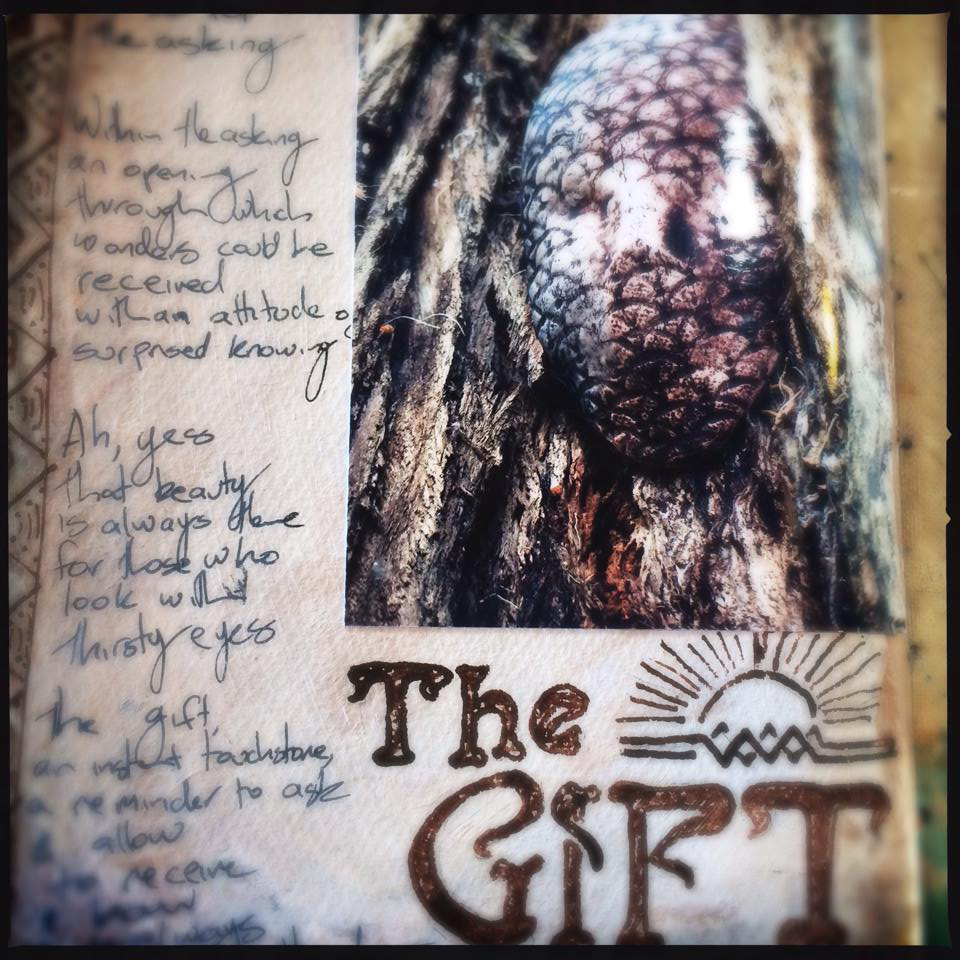 the asking
Within the asking
an opening
through which
wonders could be
received
with an attitude of
surprised knowing
Ah, yes
that beauty
is always there
for those who
look with
thirsty eyes
the gift,
an instant touchstone,
a reminder to ask
& allow
to receive
always
The
GIFT